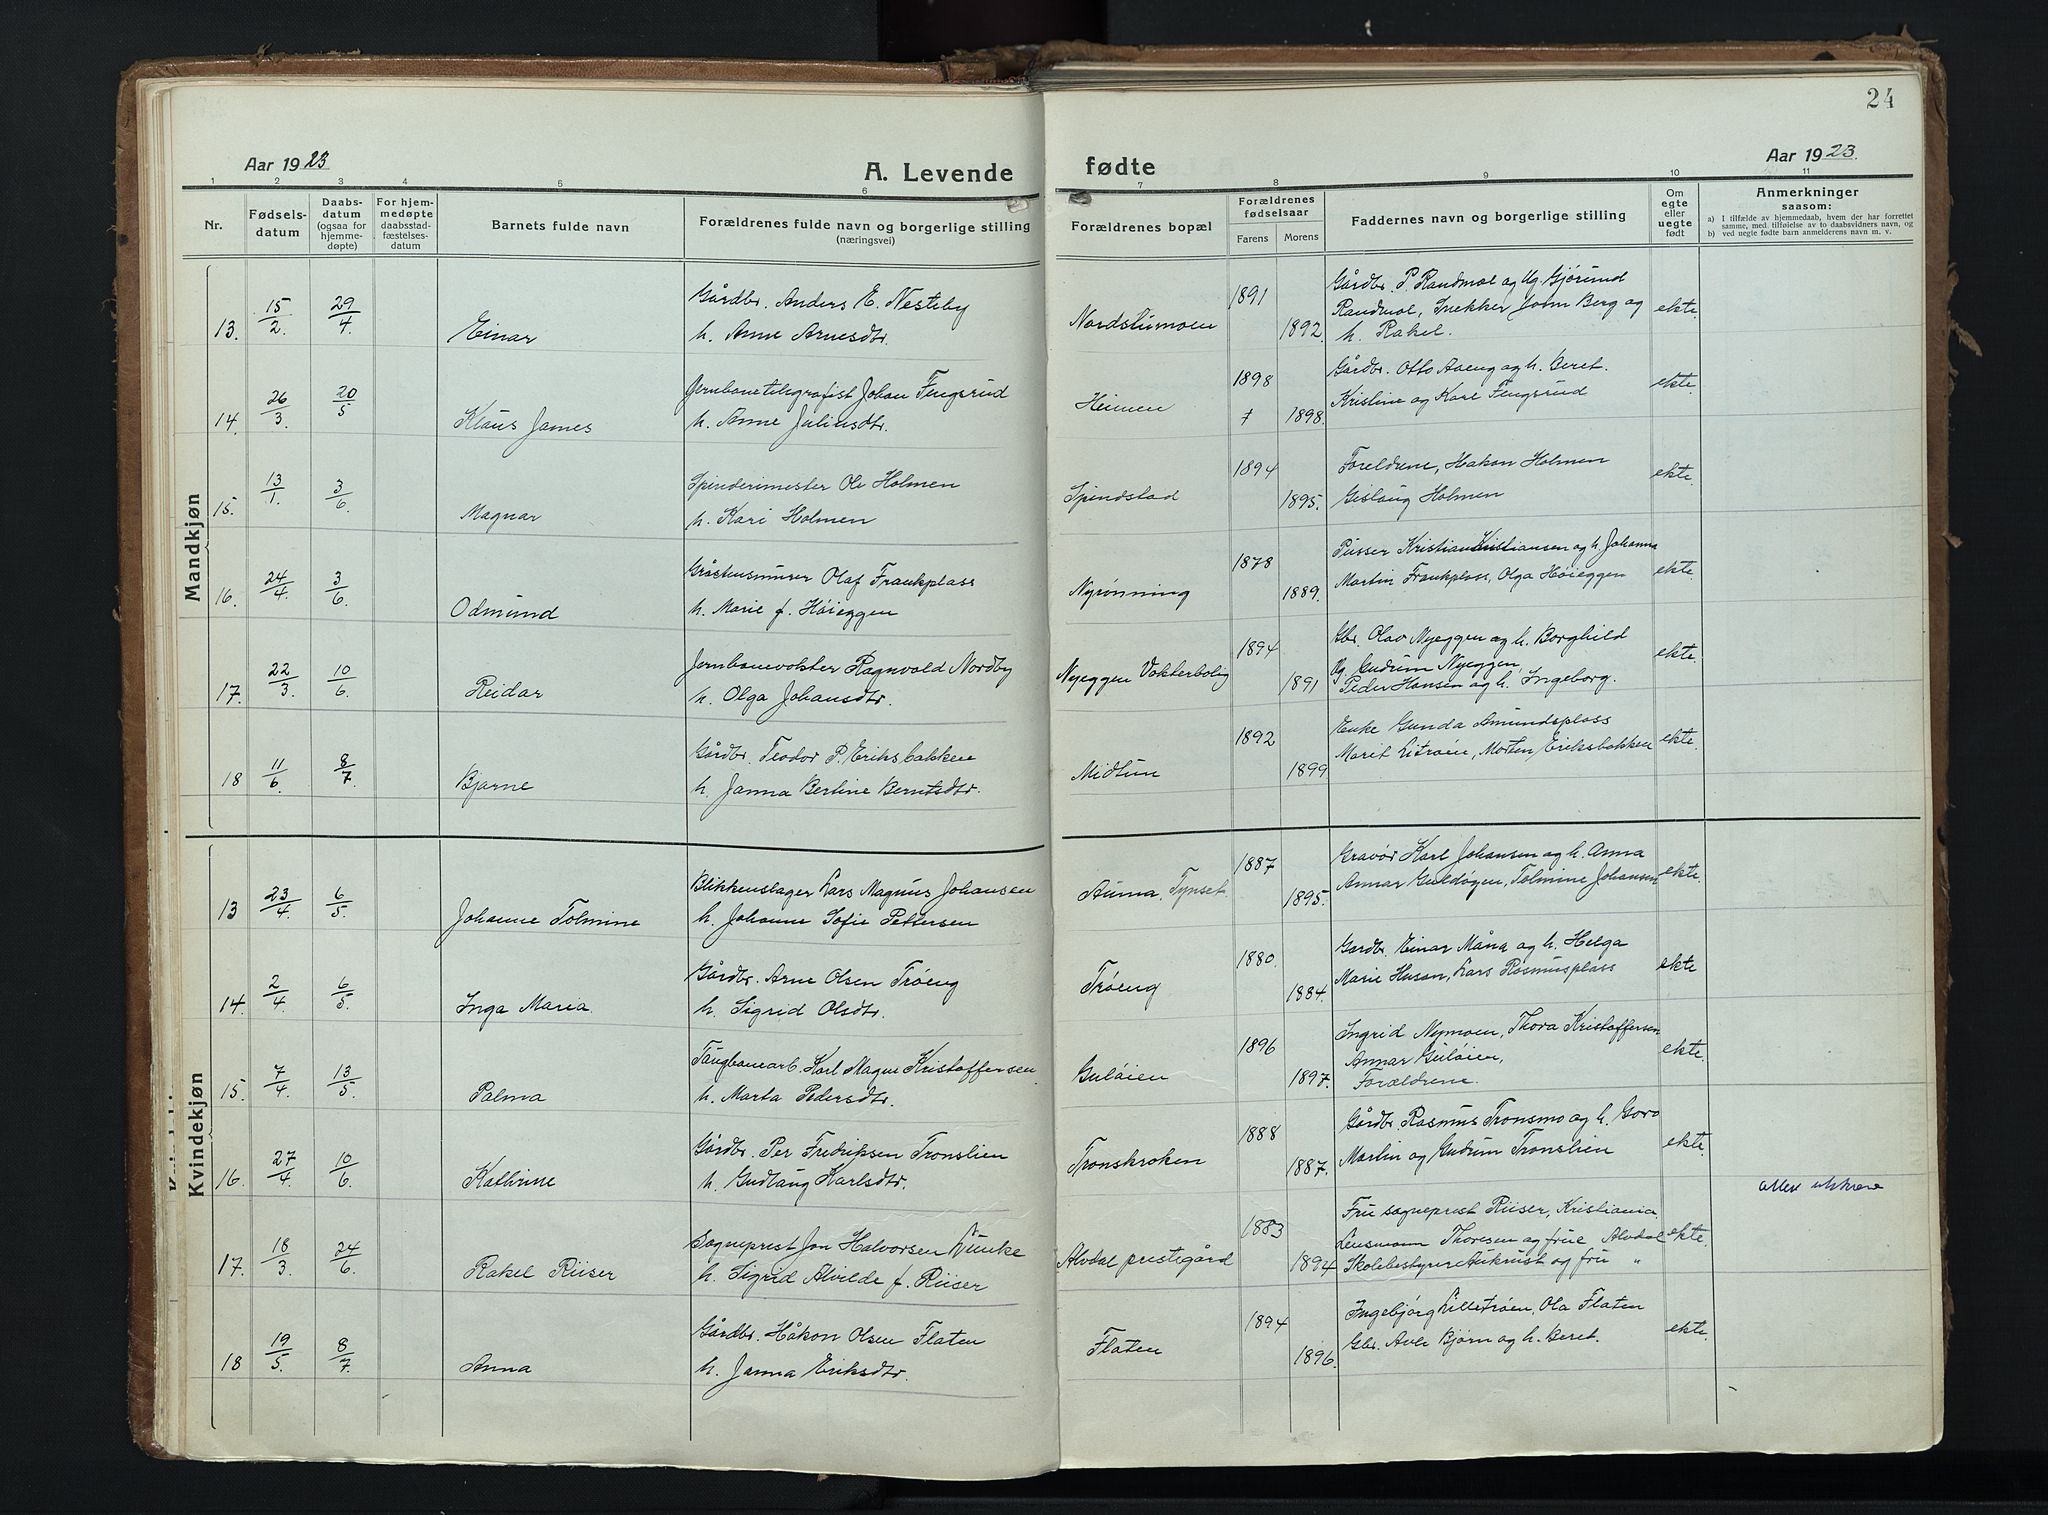 24
Aar 1923
A. Levende fødte
Aar 1923.
1 2 3 4 5 6 7 8 9 10 11
Nr.
Fødsels-
datum
Daabs-
datum
(ogsaa for
hjemme-
døpte)
For hjem-
medøpte
daabsstad-
fæstelses-
datum
Barnets fulde navn
Forældrenes fulde navn og borgerlige stilling
(næringsvei)
Forældrenes bopæl
Forældrenes
fødselsaar
Farens Morens
Faddernes navn og borgerlige stilling
Om
egte
eller
uegte
født
Anmerkninger
saasom:
a) I tilfælde av hjemmedaab, hvem der har forrettet
samme, med tilføielse av to daabsvidners navn, og
b) ved uegte fødte barn anmelderens navn m. v.
Mandkjøn
13. 15/2. 29/4. Einar
Gårdbr. Anders E. Nesteby
h. Anne Arnesdtr.
Nordstumoen 1891 1892.
Gårdbr. P. Randmæl og Ug. Gjørund
Randmæl, Snekker John Berg og
h. Rakel.
ekte.
14. 26/3. 20/5 Klaus James
Jernbanetelegrafist Johan Fengsrud
h. Anne Juliusdtr.
Heimen 1898 1898.
Gårdbr. Otto Aaeng og h. Beret.
Kristine og Kare Fengsrud
ekte.
15. 13/1. 3/6. Magnar
Spinderimester Ole Holmen
h. Kari Holmen
Spindstad 1894 1895.
Foreldrene, Hakon Holmen
Gislaug Holmen
ekte.
16. 24/4. 3/6. Odmund
Gråstensmurer Olaf Frankplass
h. Marie f. Høieggen
Nyrønning 1878 1889.
Pusser Kristian Kristiansen og h. Johanna
Martin Frankplass, Olga Høieggen
ekte.
17. 22/3. 10/6. Reidar
Jernbanevokter Ragnvald Nordby
h. Olga Johansdtr.
Nyeggen Vokterbolig 1894 1891
Gbr. Olav Nyeggen og h. Borghild
Ug. Gudrun Nyeggen,
Peder Hansen og h. Ingeborg.
ekte.
18 11/6. 8/7. Bjarne
Gårdbr. Teodor P. Eriksbakken
h. Janna Bertine Berntsdtr.
Midtun 1892 1899
Enke Gunda Amundsplass
Marit Litroen, Morten Eriksbakken
ekte.
Kvindekjøn
13 23/4. 6/5. Johanne Tolmine
Blikkenslager Lars Magnus Johansen
h. Johanne Sofie Pettersen
Auma, Tynset. 1887 1895.
Gravør Karl Johansen og h. Anna
Annar Guldøyen, Tolmine Johansen
ekte.
14. 2/4. 6/5. Inga Maria.
Gårdbr. Arne Olsen Trøeng
h. Sigrid Olsdtr.
Trøeng 1880. 1884.
Gardbr. Einar Måna og h. Helga
Marie Husan, Lars Rasmusplass
ekte
15. 7/4. 13/5. Palma
Taugbanearb. Karl Magne Kristoffersen
h. Marta Pedersdtr.
Guløien 1896 1897.
Ingrid Nymoen, Thora Kristoffersen
Annar Guløien,
Forældrene.
ekte.
16. 27/4. 10/6. Kathrine
Gårdbr. Per Fredriksen Tronslien
h. Gudlaug Karlsdtr.
Tronskroken 1888 1887.
Gårdbr. Rasmus Tronsmo og h. Goro
Martin og Gudrun Tronslien
ekte.
17. 18/3. 24/6. Rakel Riiser
Sogneprest Jon Halvorsen Vinke
h. Sigrid Alvilde f. Riiser
Alvdal prestegård 1883 1894
Fru sogneprest Riiser, Kristiania.
Lensmann Thoresen og frue Alvdal
Skolebestyrer Aukrust og fru "
ekte.
attest utskreve
18 19/5. 8/7. Anna
Gårdbr. Håkon Olsen Flaten
h. Janna Eriksdtr.
Flaten 1894 1896.
Ingebjørg Lilletrøen, Ola Flaten
Gbr. Avle Bjørn og h. Beret.
ekte.